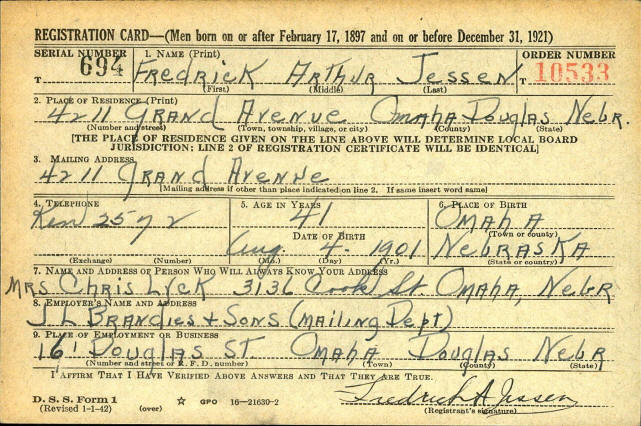 REGISTRATION CARD—(Men born on or after February 17, 1897 and on or before December 31, 1921)
SERIAL NUMBER 1. NAME (Print) ORDER NUMBER
T 694 FREDRICK ARTHUR JESSEN T 10533
(First) (Middle) (Last)
2. PLACE OF RESIDENCE (Print)
4211 GRAND AVENUE OMAHA DOUGLAS NEBR.
(Number and street) (Town, township, village, or city) (County) (State)
[THE PLACE OF RESIDENCE GIVEN ON THE LINE ABOVE WILL DETERMINE LOCAL BOARD
JURISDICTION; LINE 2 OF REGISTRATION CERTIFICATE WILL BE IDENTICAL]
3. MAILING ADDRESS
4211 GRAND AVENUE
[Mailing address if other than place indicated on line 2. If same insert word same]
4. TELEPHONE 5. AGE IN YEARS 6. PLACE OF BIRTH
Ken 2572 41 OMAHA
DATE OF BIRTH (Town or county)
Aug. 4 1901 NEBRASKA
(Exchange) (Number) (Mo.) (Day) (Yr.) (State or country)
7. NAME AND ADDRESS OF PERSON WHO WILL ALWAYS KNOW YOUR ADDRESS
MRS CHRIS LYCK 3136 St. OMAHA, NEBR
8. EMPLOYER'S NAME AND ADDRESS
J L BRANDIES + SONS (MAILING DEPT)
9. PLACE OF EMPLOYMENT OR BUSINESS
16 DOUGLAS ST. OMAHA DOUGLAS NEBR
(Number and street or R. F. D. number) (Town) (County) (State)
I AFFIRM THAT I HAVE VERIFIED ABOVE ANSWERS AND THAT THEY ARE TRUE.
D. S. S. Form 1
(Revised 1-1-42) (over) ☆ GPO 16—21630-2
Fredrick A. Jessen
(Registrant's signature)